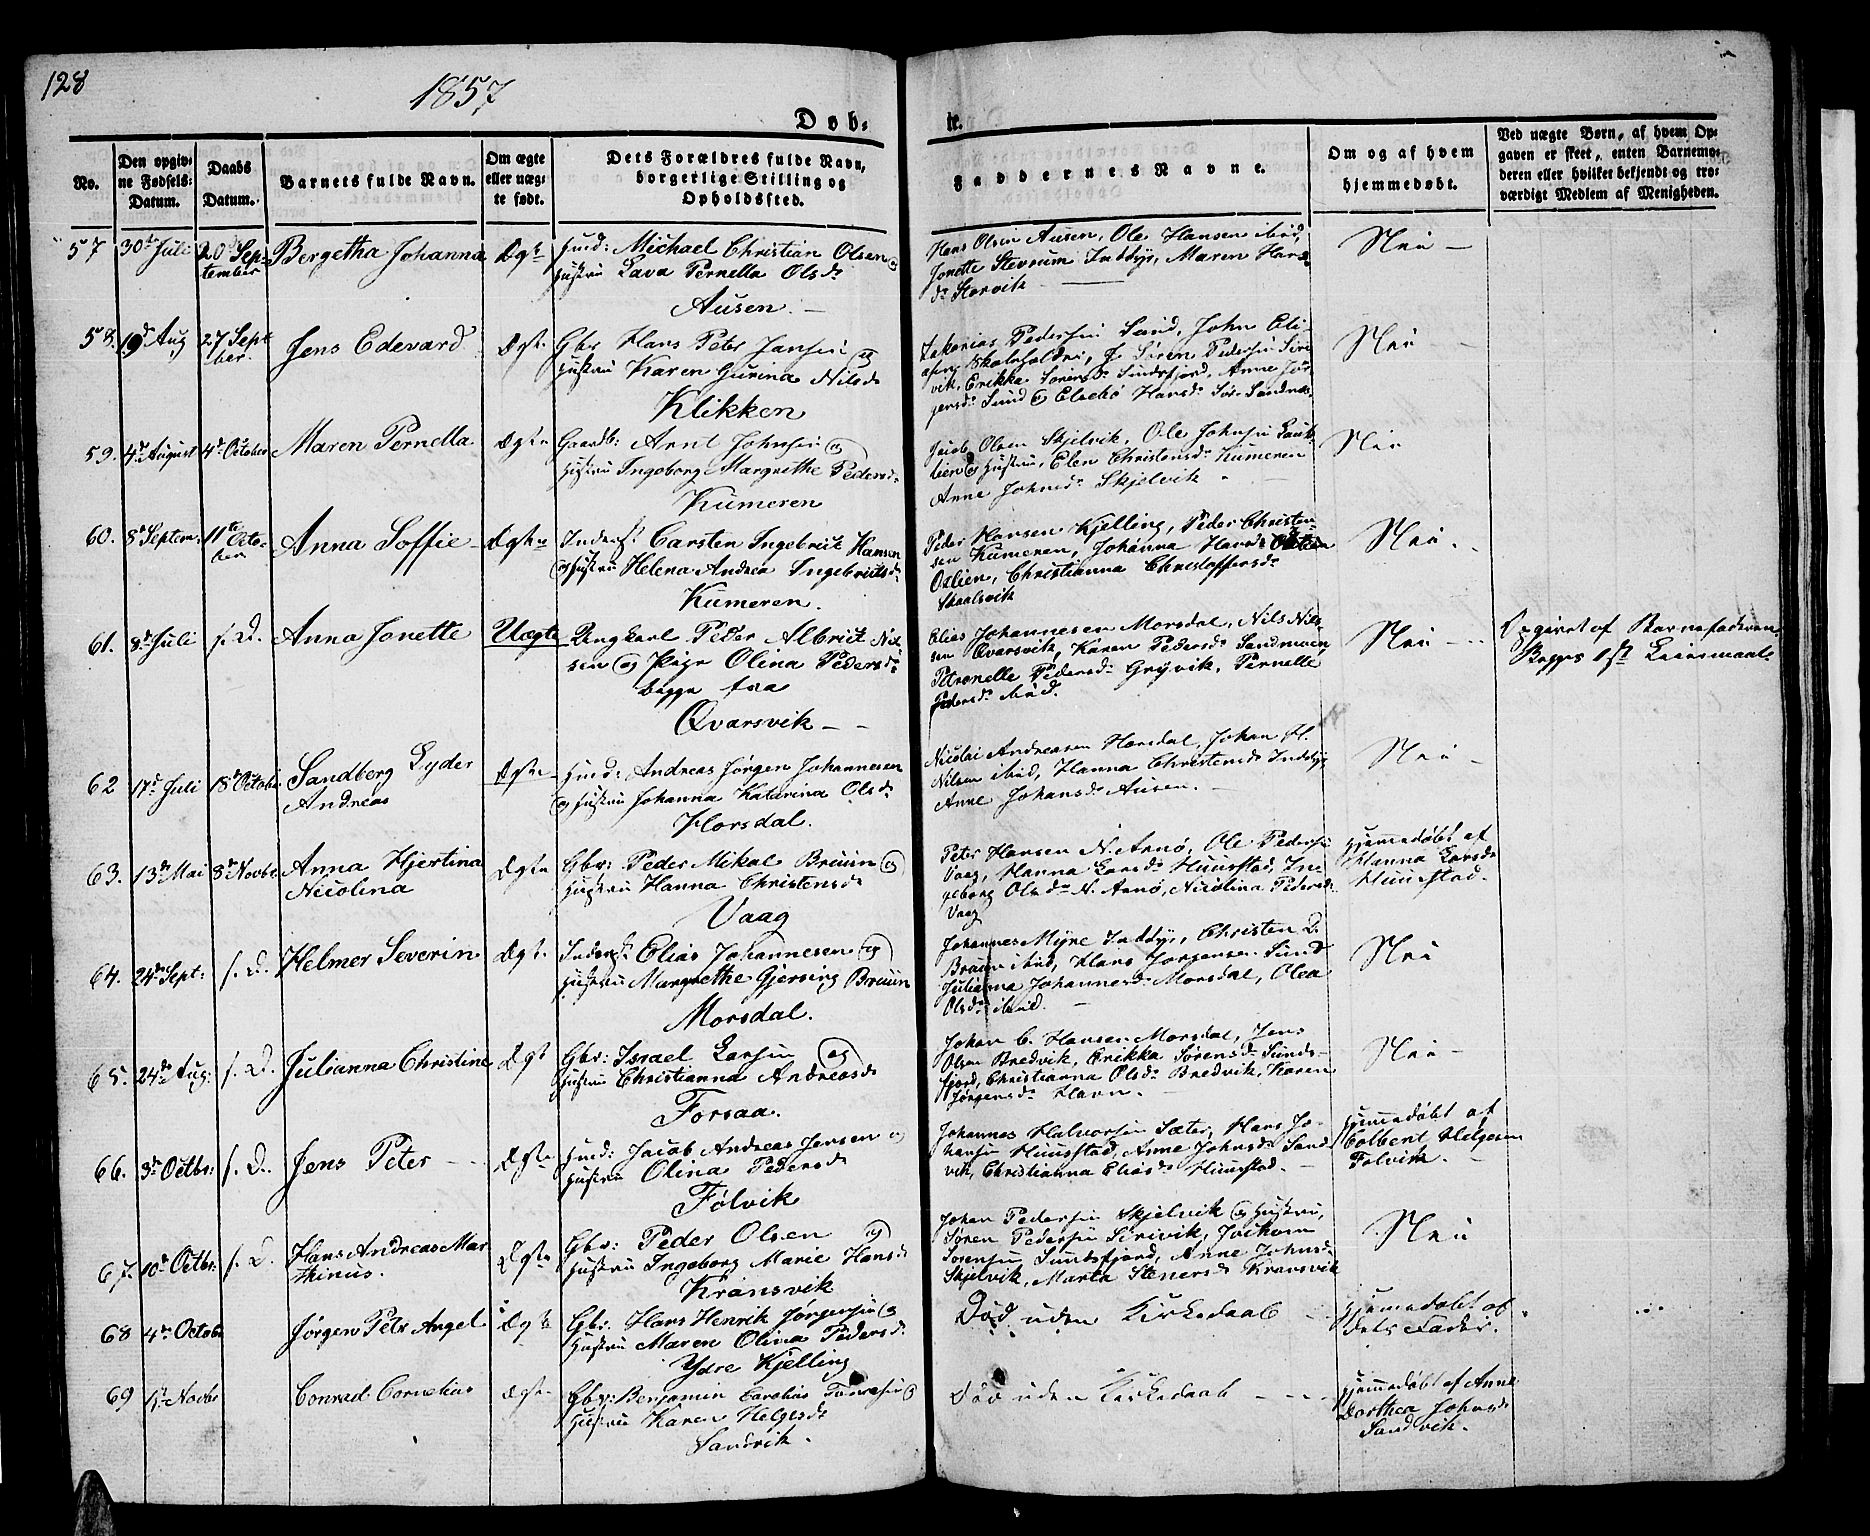 128
1857
Døb-
te.
No.
Den opgiv-
ne Fødsels-
Datum.
Daabs
Datum.
Barnets fulde Navn.
Om ægte
eller uæg-
te født.
Dets Forældres fulde Navn,
borgerlige Stilling og
Opholdssted.
Faddernes Navne.
Om og af hvem
hjemmedøbt.
Ved uægte Børn, af hvem Op-
gaven er skeet, enten Barnemo-
deren eller hvilket bekjendt og tro-
værdigt Medlem af Menigheden.
57
30te Juli
20de Sep-
tember
Bergetha Johanna
Ægte
Huusm: Michael Christian Olsen og
Hustru Lava Pernella Olsdr
Ausen.
Hans Olsen Ausen, Ole Hansen ibid,
Jonette Stensum Inddyr, Maren Hans-
dr Storvik
Nei
58.
19de Aug
27 Sept
ber.
Jens Edevard
Ægte
Gbr Hans Peter Jansen og
Hustru Karen Gurina Nilsdr
Klikken
Zakarias Pedersen Sund, John Eli-
asen Skoleholder, Søren Pedersen Siri-
vik, Erikka Sørensdr Sundsfjord, Anne Jør-
gensdr Sund og Elsebø Hansdr Sør-Sandnes.
Nei
59.
4de August
4de October
Maren Pernella.
Ægte
Gaardb: Arnt Johnsen og
Hustru Ingeborg Margrethe Pedersdr
Kumeren
Jacob Olsen Skjelvik, Ole Johnsen
og Hustru, Elen Christensdr Kumeren
Anne Johnsdr Skjelvik
Nei
60.
8de Septem:
11te Octo-
ber
Anna Soffie
Ægte
Inderst Carsten Ingebrikt Hansen
og Hustru Helena Andrea Ingebriktsdr
Kumeren.
Peder Hansen Kjelling, Peder Christen-
sen Kumeren, Johanna Hansdr
Oslien, Christianna Christoffersdr
Skaalsvik
Nei
61.
8de Juli
s. D.
Anna Jonette
Uægte
Ungkarl Peder Albrikt Nil-
sen og Pige Olina Pedersdr
begge fra
Qvarsvik
Elias Johannesen Morsdal, Nils Nil-
sen Qvarsvik, Karen Pedersdr Sandmoen,
Petronelle Pedersdr Grøvik, Pernelle
Pedersdr ibid.
Nei
Opgivet af Barnefaderen.
Begges 1st Leiermaal.
62
17de Juli
18de Octobr
Sandberg Lyder
Andreas
Ægte
Huusm: Andreas Jørgen Johannesen
og Hustru Johanna Katarina Olsdr
Horsdal.
Nicolai Andreasen Horsdal, Johan H.
Nilsen ibid, Hanna Christensdr Inddyr,
Anne Johansdr Ausen.
Nei
63.
13de Mai
8de Novbr
Anna Hjertina
Nicolina
Ægte
Gbr: Peder Mikal Bruun og
Hustru Hanna Christensdr
Vaag
Peter Hansen N. Arnø, Ole Pedersen
Vaag, Hanna Larsdr Huustad, In-
geborg Olsdr N. Arnø, Nicolina Pedersdr
Vaag
Hjemmedøbt af
Hanna Larsdr
Huustad.
64.
24de Sept:
s. D.
Helmer Severin
Ægt.
Inderst Elias Johannesen og
Hustru Margrethe Gjersing Bruun
Morsdal.
Johannes Myre Inddyr, Christen D.
Bruun ibid, Hans Jørgensen Sund
Julianna Johannesdr Morsdal, Olea
Olsdr ibid.
Nei
65.
24de Aug:
s. D.
Julianna Christine
Ægt
Gbr: Israel Larsen og
Hustru Christianna Andreasdr
Forsaa.
Johan C. Hansen Morsdal, Jens
Olsen Bredvik, Erikka Sørensdr Sunds-
fjord, Christianna Olsdr Bredvik, Karen
Jørgensdr Havn.
Nei
66.
3de Octbr:
s. D.
Jens Peter
Ægte
Huusm: Jacob Andreas Jensen og
Hustru Olina Pedersdr
Følvik
Johannes Halvorsen Sæter, Hans Jo-
hansen Huustad, Anne Johnsdr Sand-
vik, Christianna Eliasdr Huustad.
Hjemmedøbt af
Colbent Helgesen
Følvik.
67.
10de Octbr:
s. D.
Hans Andreas Mar
thinus.
Ægte
Gbr: Peder Olsen og
Hustru Ingeborg Marie Hansdr
Kransvik
Johan Pedersen Skjelvik og Hustru,
Søren Pedersen Sirivik, Joikom
Sørensen Sundsfjord, Anne Johnsdr
Skjelvik, Marta Stenersdr Kransvik
Nei
68
4de Octobr
Jørgen Petr Angel
Ægte
Gbr. Hans Henrik Jørgensen og
Hustru Maren Olina Pedersdr
Ydre Kjelling
Død uden Kirkedaab
Hjemmedøbt af
dets Fader.
69
1ste Novbr
Conrad Cornelius
Ægte
Gbr: Benjamin Carolius Tønnesen og
Hustru Karen Helgesdr
Sandvik.
Død uden Kirkedaab
Hjemmedøbt af Anne
Dorthea Johnsdr
Sandvik.